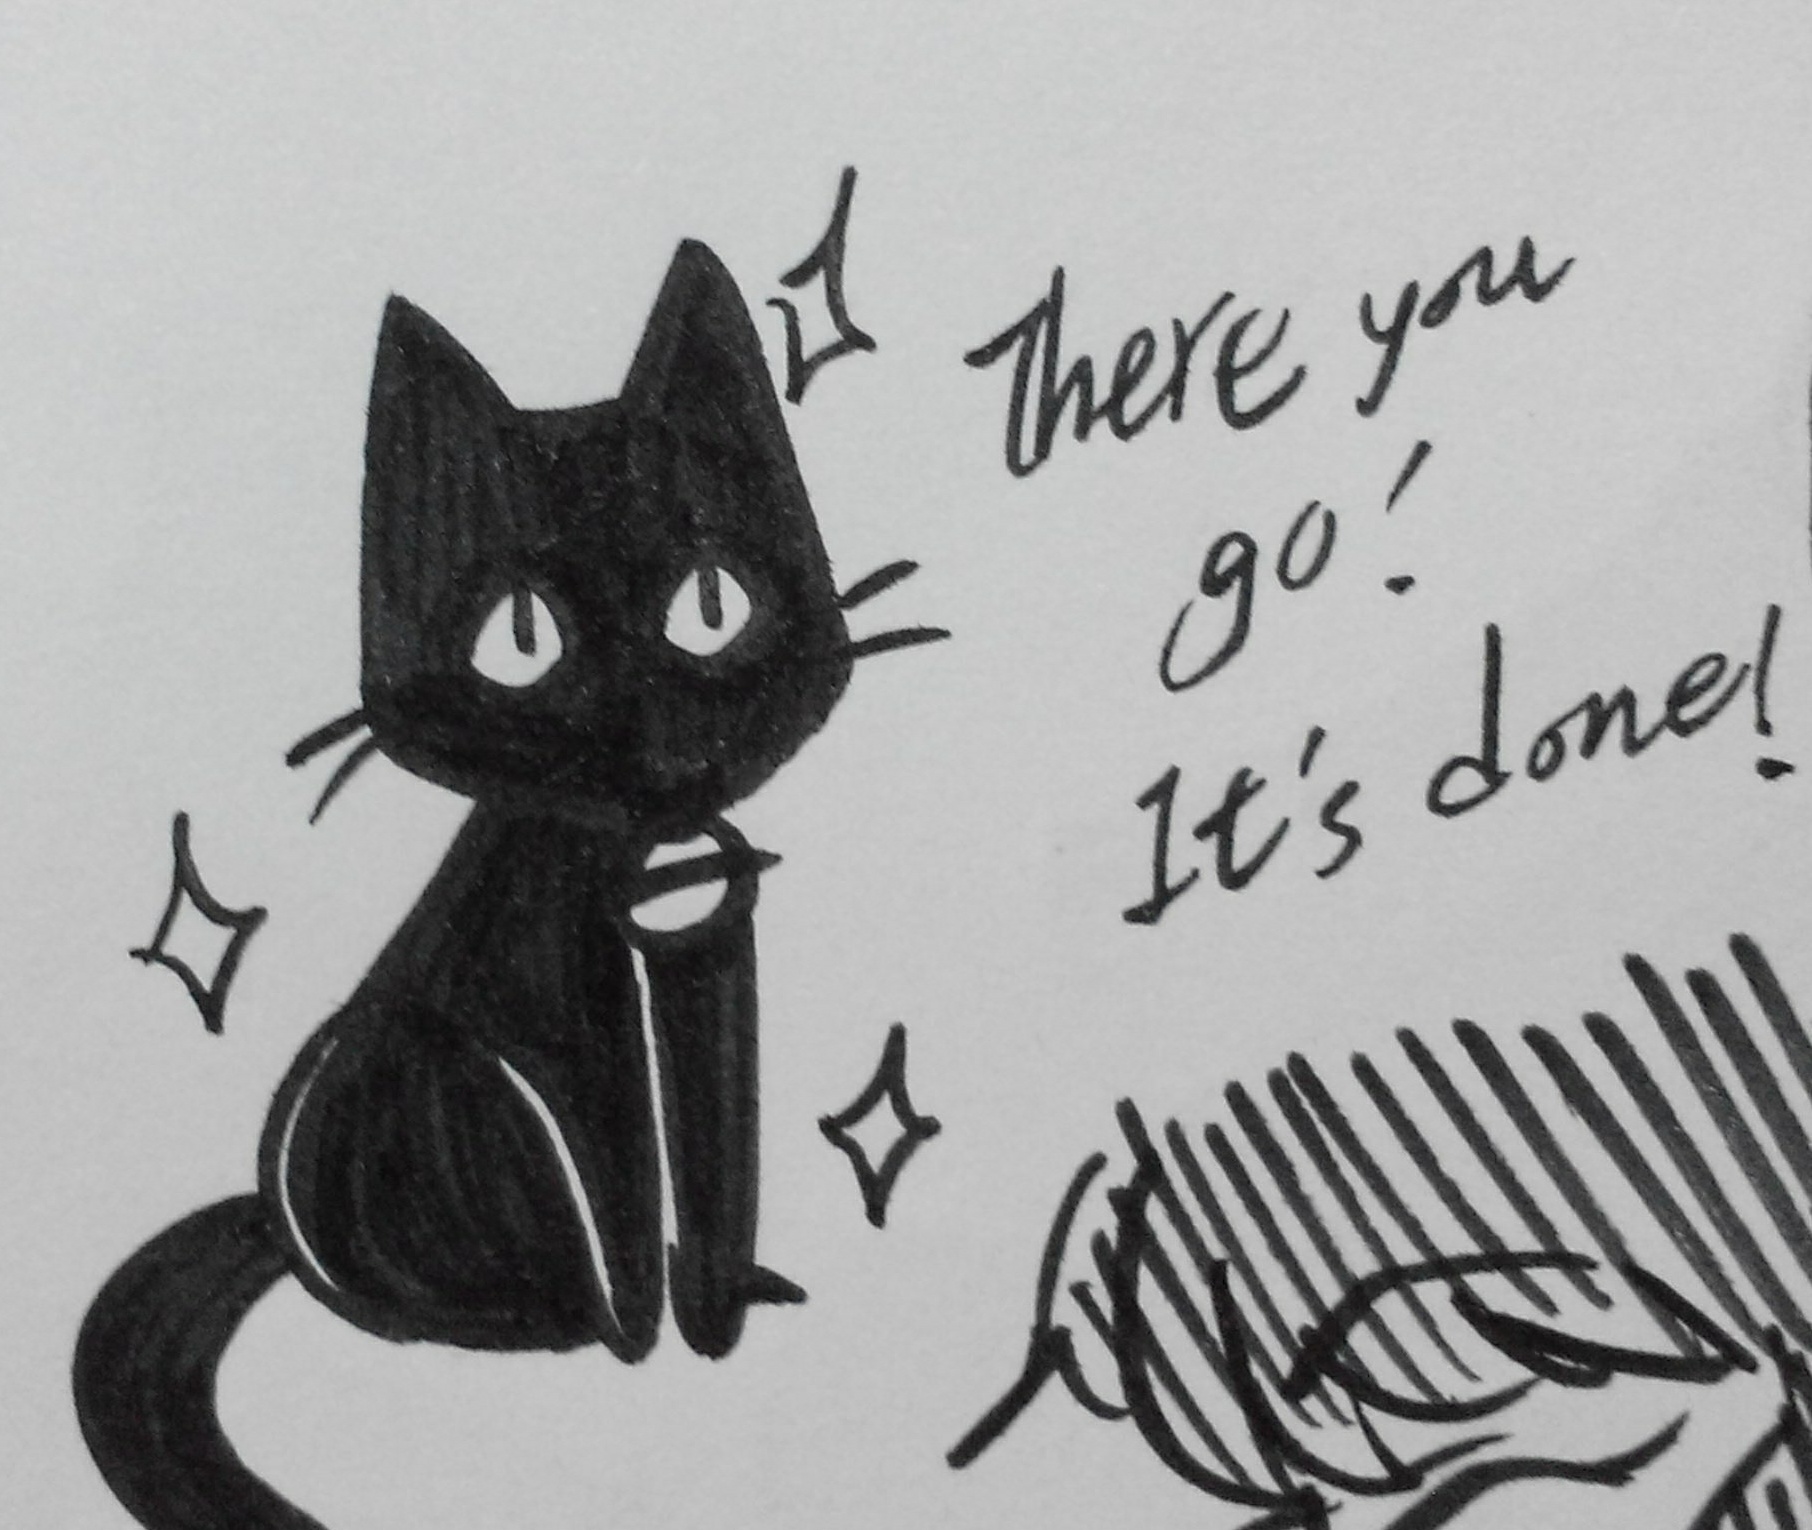 There you
go!
It's done!